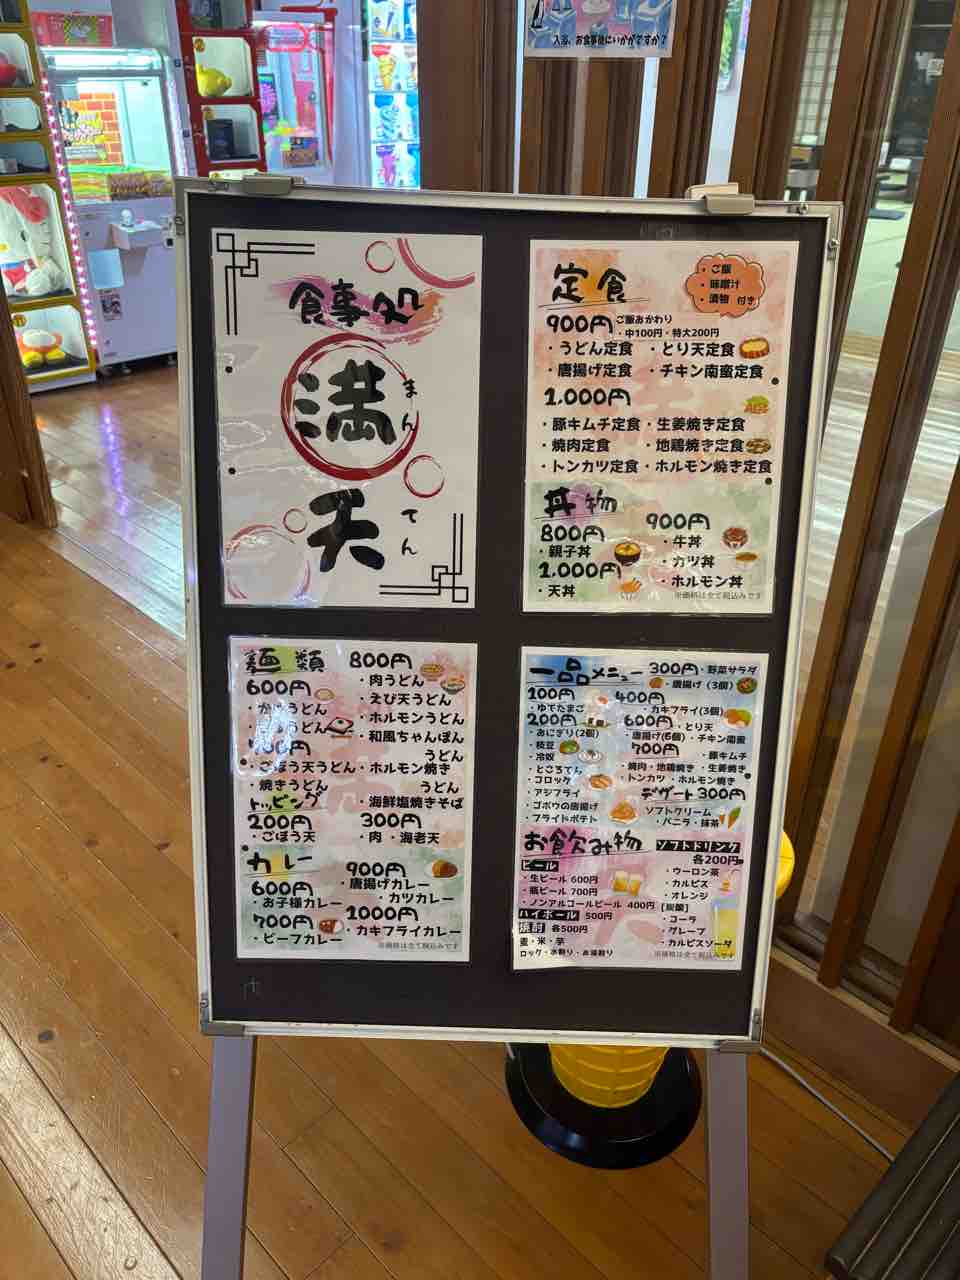 入浴、お食事後にいかがですか？
食事処
満天
まんてん
定食
・ご飯
・味噌汁
・漬物 付き
900円 ご飯おかわり
・中100円・特大200円
・うどん定食 ・とり天定食
・唐揚げ定食 ・チキン南蛮定食
1,000円
・豚キムチ定食 ・生姜焼き定食
・焼肉定食 ・地鶏焼き定食
・トンカツ定食 ・ホルモン焼き定食
丼物
800円
・親子丼
1,000円
・天丼
900円
・牛丼
・カツ丼
・ホルモン丼
※価格は全て税込みです
麺類
600円
・かけうどん
うどん
円
・ごぼう天うどん
・焼きうどん
800円
・肉うどん
・えび天うどん
・ホルモンうどん
・和風ちゃんぽん
うどん
・ホルモン焼き
うどん
・海鮮塩焼きそば
トッピング
200円
・ごぼう天
300円
・肉 ・海老天
カレー
600円
・お子様カレー
700円
・ビーフカレー
900円
・唐揚げカレー
・カツカレー
1000円
・カキフライカレー
※価格は全て税込みです
一品メニュー
100円
・ゆでたまご
200円
・おにぎり(2個)
・枝豆
・冷奴
・ところてん
・コロッケ
・アジフライ
・ゴボウの唐揚げ
・フライドポテト
300円 ・野菜サラダ
・唐揚げ（3個）
400円
・カキフライ(3個)
600円 ・とり天
・唐揚げ(6個) ・チキン南蛮
700円 ・豚キムチ
・焼肉・地鶏焼き ・生姜焼き
・トンカツ ・ホルモン焼き
デザート 300円
ソフトクリーム
・バニラ ・抹茶
お飲み物
ビール
・生ビール 600円
・瓶ビール 700円
・ノンアルコールビール 400円
ハイボール 500円
焼酎 各500円
麦・米・芋
ロック・水割り・お湯割り
ソフトドリンク
各200円
・ウーロン茶
・カルピス
・オレンジ
[炭酸]
・コーラ
・グレープ
・カルピスソーダ
※価格は全て税込みです